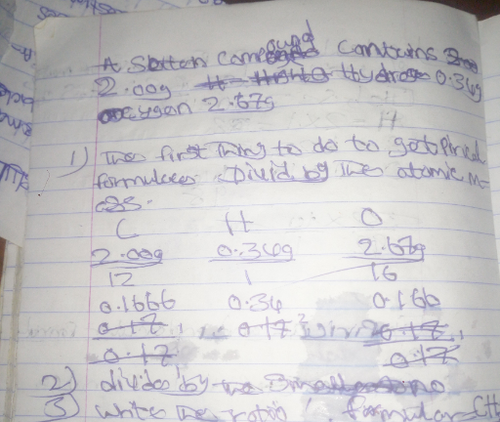 A Sutton compound contains
2.00g Hydroge 0.34g
oxygen 2.67g
1) The first thing to do to get
formulaes Divid by the atomic m-
ass.
C H O
2.00g 0.34g 2.67g
12 1 16
0.1666 0.34 0.166
0.17 0.17 0.17
0.17 0.17
2) divided by the Smallest no
3) write the ratio formular CH